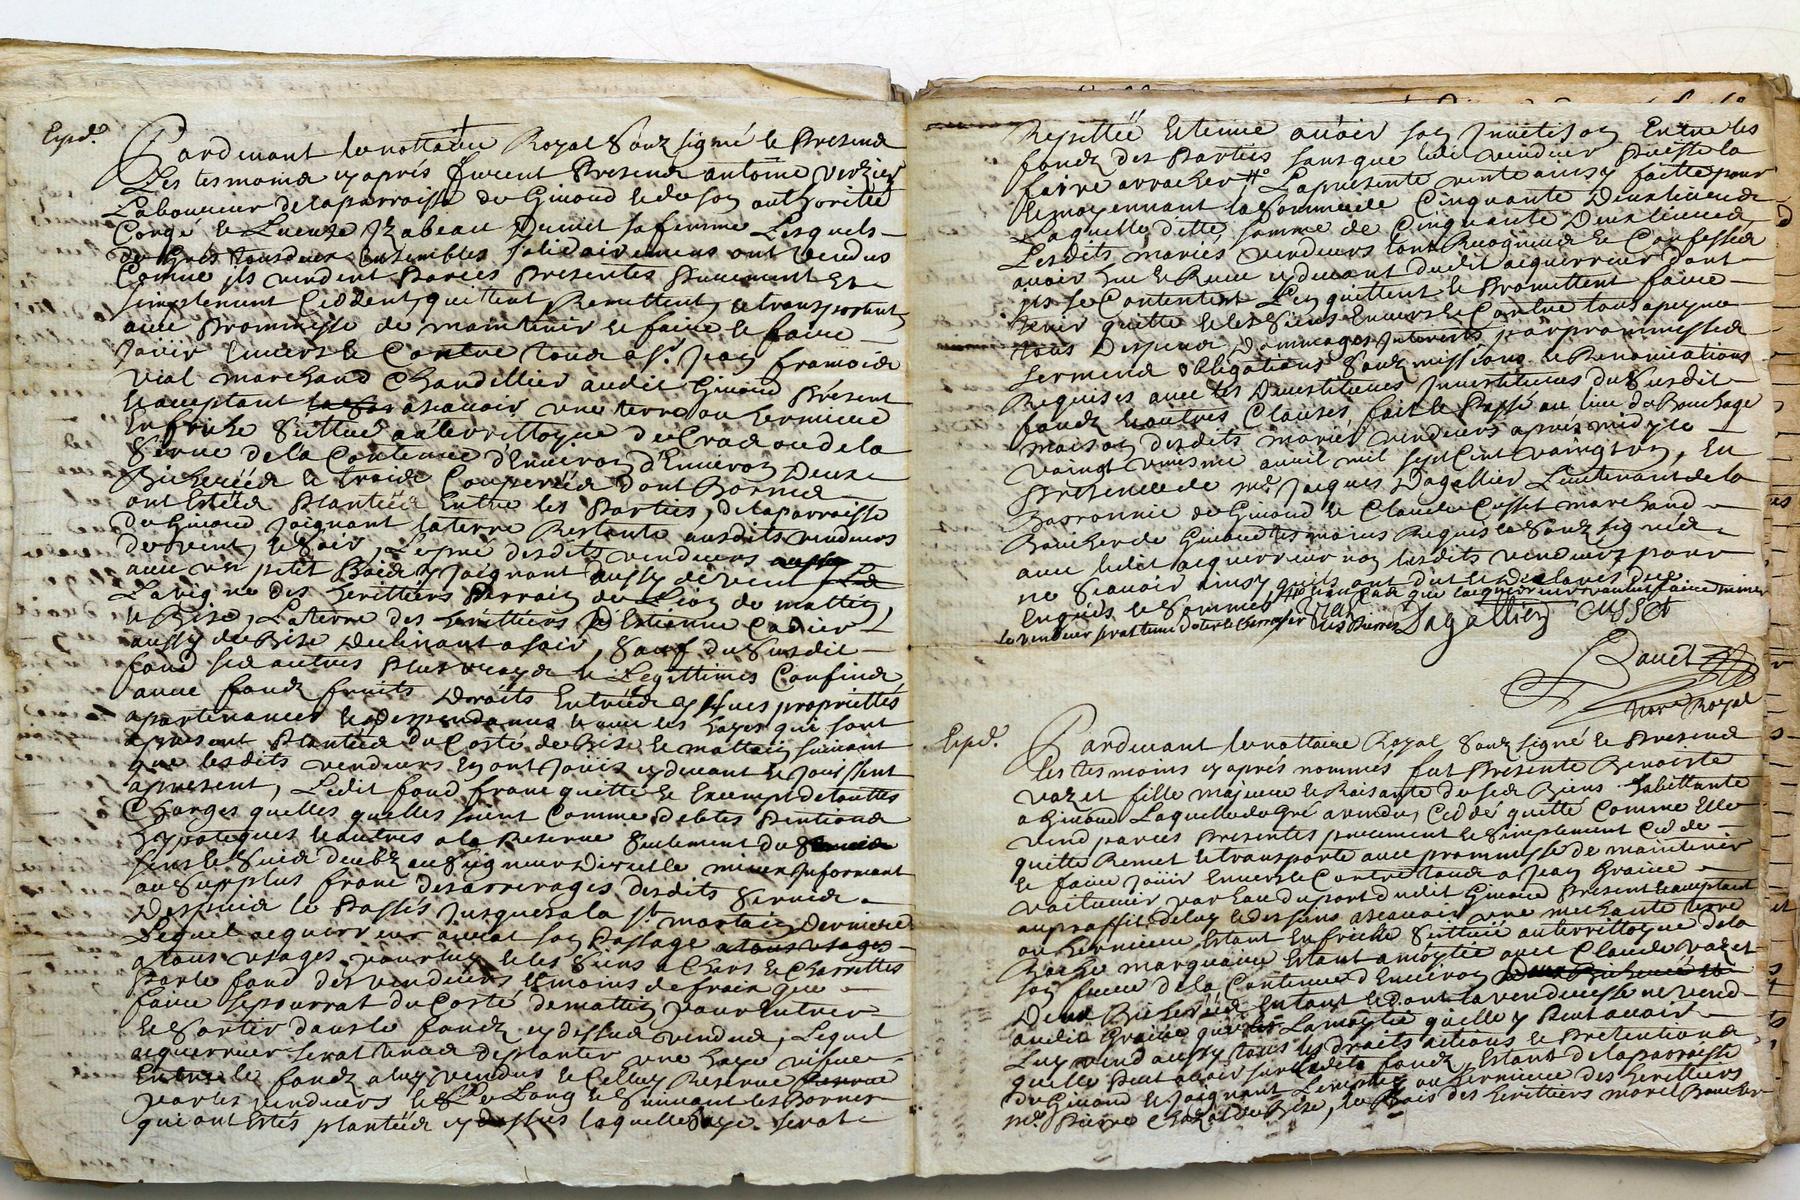 Expd.
Pardevant le nottaire Royal Souz signé et Present
Les tesmoins cy aprés furent Presents antoine verzier
Laboureur de la parroisse de Givord et de son authorité
Congé et Licence Izabeau sa femme Lesquels
de Gres tous deux Ensembles solidairement ont vendus
Comme ils vendent Par ces Presentes Purement Et
simplement Ceddent, quittent Remettent, et transportent
avec Prommesse de maintenir et faire et faire
Joüir Envers et Contre tous a Sr. Jean francois
vial marchand Chandellier audit Givord Present
et acceptant ascavoir une terre ou hermiture
En friche Scittuée au territtoyre de
de la Contenue d'Environ d'Environ Deux
Bicherées et trois Couperées dont Bornes
ont Estées Plantées Entre les Parties, de la parroisse
de Givord Joignant la terre Restante ausdits vendeurs
de vent, et soir, Le pré desdits vendeurs
avec un petit Bois y Joignant aussy de vent
La vigne des heritiers Perrain de de mattin,
et Bize, La terre des heritiers d'Estienne
aussy de Bize declinant a soir, Sauf du Susdit
fond ses autres Plus vrays et Legittimes Confins
avec fonds fruits Droits Entrées yssues proprietés
apartenances et Dependances et avec les hayes qui sont
apresent Plantées du Costé de Bize et mattin suivant
que lesdits vendeurs en ont Joüis cy devant et Jouissent
apresent, Ledit fond franc quitte et Exempt de touttes
Charges quelles quelles soient Comme debtes Pentions
hypoteques et autres a la Reserve Seulement du
Cens et Servis deubz au Seigneurs Directe mieux Informant
au Surplus franc des arrerages desdits Servis
Depuis le Passés Jusques a la St. martin Derniere
Lequel acquerreur aurat son Passage
a tous usages pour luy et les siens a Chars et Charrettes
Par le fond des vendeurs Et moins de frais que
faire se pourrat du Coste de mattin pour Entrer
et Sortir dans le fondz cy dessus vendus, Lequel
acquerreur serat tenus de planter une haye visve
Entre le fondz a luy vendus et Celluy Reservé
par les vendeurs et Le Long et Suivant les Bornes
qui ont Estés plantées cy dessus laquelle haye serat
Reputtée Et tenue avoir son Entre les
fondz des Parties sans que ledit vendeur Puisse la
faire arracher La presente vente ainsy faitte pour
et moyennant la Somme de Cinquante Deux livres
Laquelle ditte, somme de Cinquante Deux livres
Lesdits mariés vendeurs ont Recognus et Confessés
avoir Eue et Receu cy devant dudit acquerreur dont
ils se Contentent L'en quittent et Promettent faire
tenir quitte et les Siens Envers et Contre tous a peyne
tous Despens Dommages Interests par prommesses
serments obligations Souzmissions et Renonciations
Requises avec les Devestitures Investitures du Susdit
fondz et autres Clauses, fait et Passé au lieu du Bouchage
maison desdits mariés vendeurs apres midy le
vaingt uniesme avril mil sept Cent vaingt un, En
presence de me. Jacques Dagallier Lieutenant de la
Barronnie de Givord et Claude Cusset marchand
Boucher de Givord tesmoins Requis et Souz signés
avec ledit acquerreur non lesdits vendeurs pour
ne Scavoir ainsy quils ont dit et declarés de ce
Enquis et Sommés, en cas que lacquerreur voulut faire miner
le vendeur serat tenu doter et charroyer les Pierres
Vial Dagallier CUSSET
Bouet
Nore. Royal
Expd.
Pardevant le nottaire Royal Souz signé et Present
les tesmoins cy aprés nommés fut Presente Benoiste
vazet fille majeure et Jouissante de ses Biens habittante
a Givord Laquelle de Gré a vendu, Ceddé quitté Comme Elle
vend par ces Presentes purement et Simplement Cedde
quitte Remet et transporte avec prommesse de maintenir
et faire Joüir Envers et Contre tous a Jean Graire
voiturier par Eau du port dudit Givord Present et acceptant
au proffit de luy et des siens ascavoir une mechante terre
ou hermiture Estant En friche Scittuée au territtoyre de la
Roche marquaire Estant a moytié avec Claude vazet
son frere de la Contenue d'Environ
Deux Bicherées En tant et dont la venderesse ne vend
audit Graire que La moytié quelle y Peut avoir
Luy vend aussy tous les droits actions et Pretentions
quelle Peut avoir sur lesdits fondz, Estant de la parroisse
de Givord et Joignant Les ou hermiture des heritiers
me. Pierre de Bize, Le Bois des heritiers morel Boucher